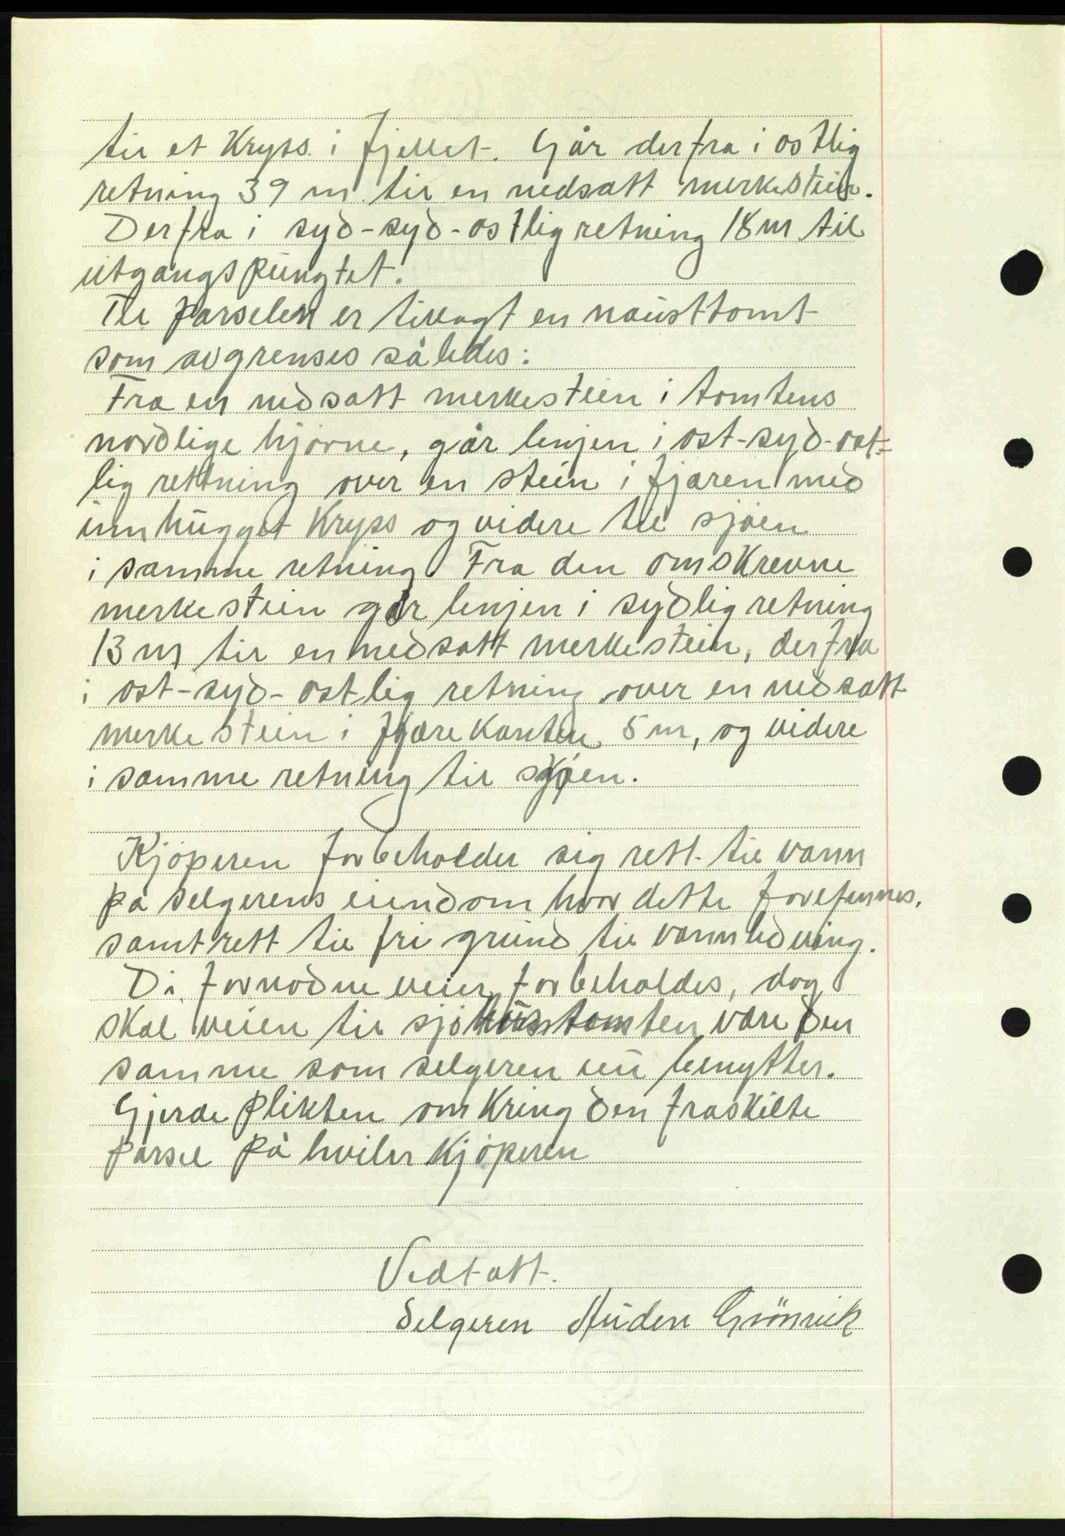 til et Kryss i fjellet. Går derfra i ostlig
retning 39 m til en nedsatt merkestein.
Derfra i syd-syd-ostlig retning 18 m til
utgangspungtet.
Til parselen er tillagt en nausttomt
som avgrenses således:
Fra en nedsatt merkestein i tomtens
nordlige hjörne, går linjen i ost-syd-ost-
lig rettning over en stein i fjæren med
innhugget Kryss og videre til sjöen
i samme retning Fra den omskrevne
merkestein går linjen i sydlig retning
13 m til en nedsatt merkestein, derfra
i ost-syd-ostlig retning over en nedsatt
merkestein i fjærekanten 5 m, og videre
i samme retning til sjöen.
Kjöperen forbeholder sig rett til vann
på selgerens eiendom hvor dette forefinnes,
samt rett til fri grunn til vannledning.
De fornödne veier forbeholdes, dog
skal veien til sjöhustomten være den
samme som selgeren nu benytter.
Gjerdeplikten omkring den fraskilte
parsel påhviler Kjöperen
Vedtatt.
Selgeren Auden Grönvik